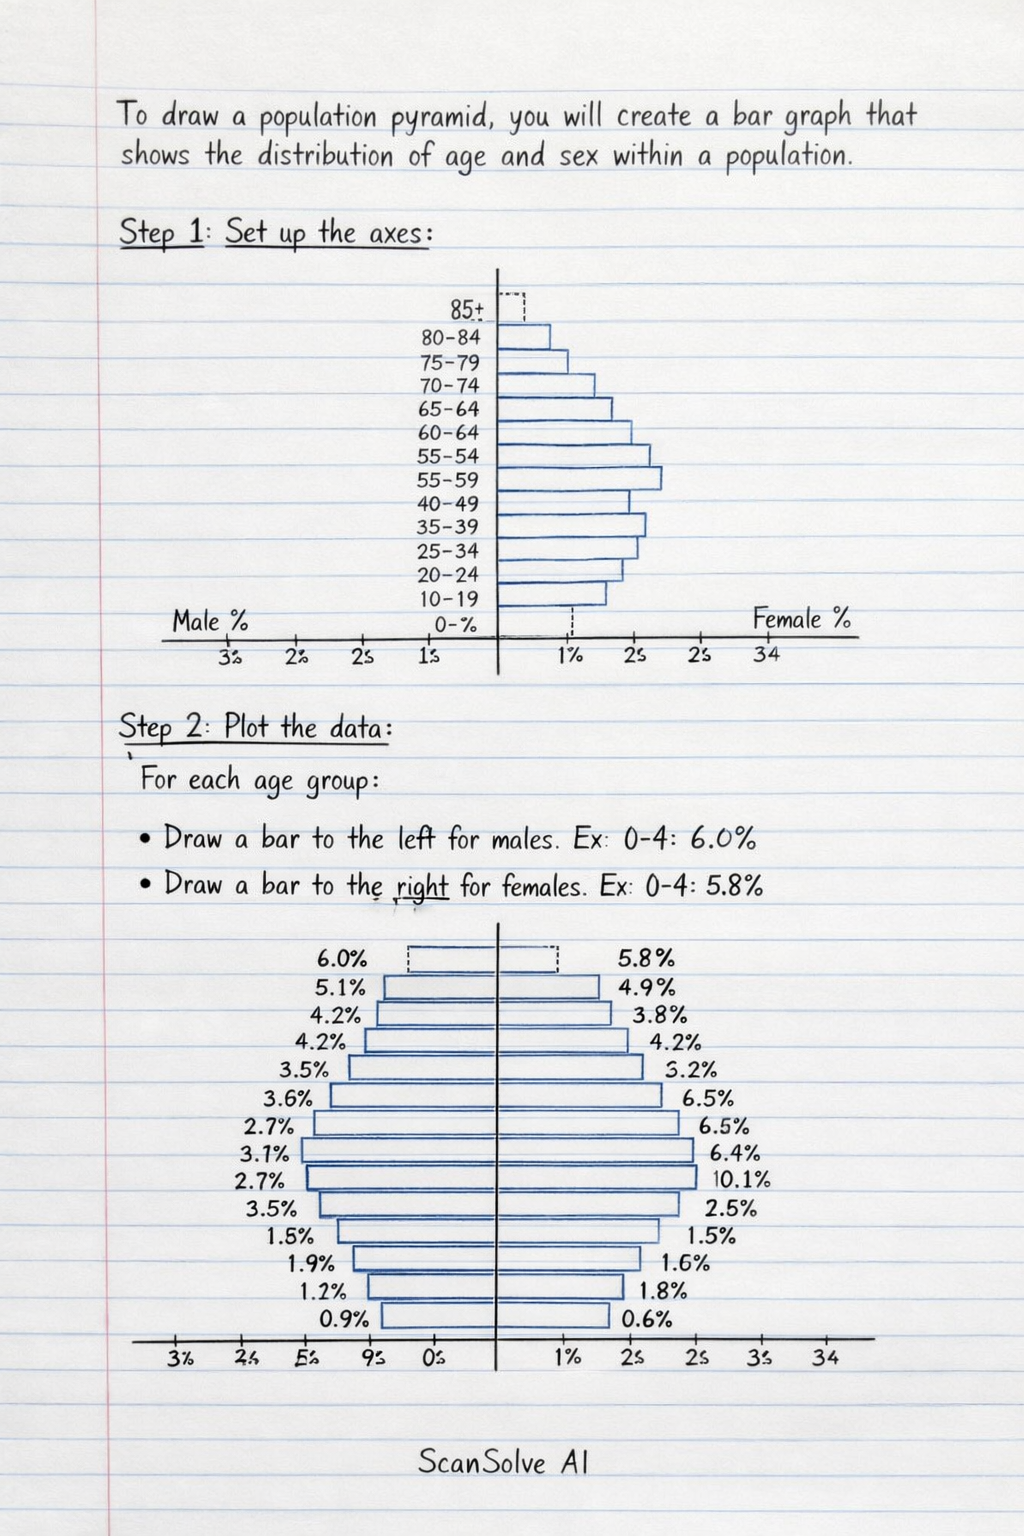 To draw a population pyramid, you will create a bar graph that
shows the distribution of age and sex within a population.
Step 1: Set up the axes:
85+
80-84
75-79
70-74
65-64
60-64
55-54
55-59
40-49
35-39
25-34
20-24
10-19
Male % 0-% Female %
3s 2s 2s 1s 1% 2s 2s 34
Step 2: Plot the data:
For each age group:
• Draw a bar to the left for males. Ex: 0-4: 6.0%
• Draw a bar to the right for females. Ex: 0-4: 5.8%
6.0% 5.8%
5.1% 4.9%
4.2% 3.8%
4.2% 4.2%
3.5% 3.2%
3.6% 6.5%
2.7% 6.5%
3.1% 6.4%
2.7% 10.1%
3.5% 2.5%
1.5% 1.5%
1.9% 1.6%
1.2% 1.8%
0.9% 0.6%
3% 9s 0s 1% 2s 2s 3s 34
ScanSolve AI